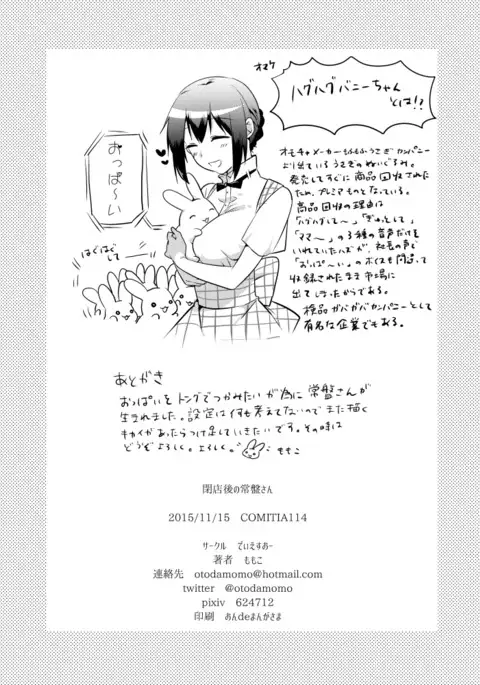 オマケ
ハグハグバニーちゃん
とは!!
おっぱ〜い
はぐはぐ
して〜
オモチャメーカーもふもふうさぎカンパニー
より出ているうさぎのぬいぐるみ。
発売してすぐに商品回収された
ため、プレミアものとなっている。
商品回収の理由は
「ハグハグして〜」「ぎゅっとして」
「ママ〜」の3種の音声だけを
いれていたハズが、社長の声で
「おっぱ〜い」のボイスも間違って
収録されたまま市場に
出てしまったからである。
検品ガバガバカンパニーとして
有名な企業でもある。
あとがき
おっぱいをトングでつかみたいが為に常盤さんが
生まれました。設定は何も考えてないのでまた描く
キカイがあったらつけ足していきたいです。その時は
どうぞよろしく。よろしく。
ももこ
閉店後の常盤さん
2015/11/15 COMITIA114
サークル でぃえすおー
著者 ももこ
連絡先 otodamomo@hotmail.com
twitter @otodamomo
pixiv 624712
印刷 あんdeまんがさま